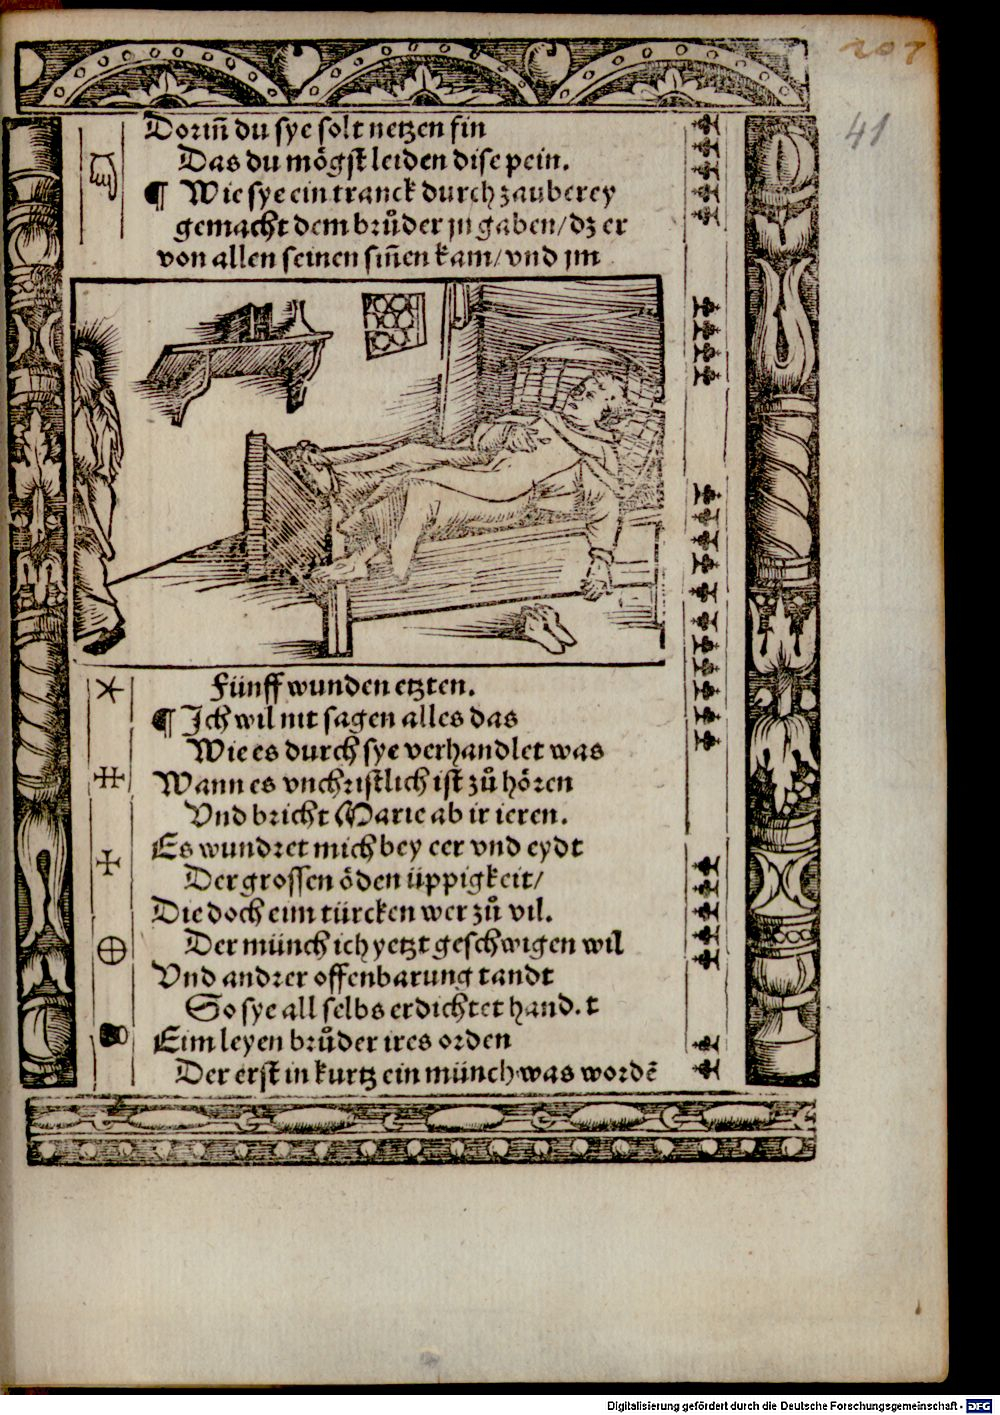 207
41
Dorin̄ du sye solt netzen fin
Das du mögst leiden dise pein.
¶ Wie sye ein tranck durch zauberey
gemacht dem brůder jn gaben/ dz er
von allen seinen sin̄en kam/ vnd jm
Fünff wunden etzten.
¶ Ich wil nit sagen alles das
Wie es durch sye verhandlet was
Wann es vnchristlich ist zů hören
Vnd bricht Marie ab ir ieren.
Es wundret mich bey eer vnd eydt
Der grossen öden üppigkeit/
Die doch eim türcken wer zů vil.
Der münch ich yetzt geschwigen wil
Vnd andrer offenbarung tandt
So sye all selbs erdichtet hand. t
Eim leyen brůder ires orden
Der erst in kurtz ein münch was wordē
Digitalisierung gefördert durch die Deutsche Forschungsgemeinschaft - DFG